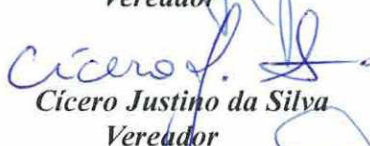 Vereador
Cícero J. S.
Cícero Justino da Silva
Vereador